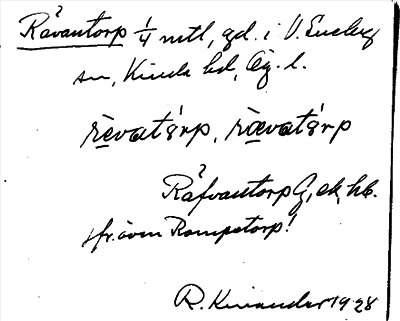 Råvantorp 1/4 mtl, gd. i V. Eneby
sn, Kinda hd, Ög. l.
rèvatårp, rævatårp
Råfvantorp G, ek, hb.
jfr. även Rompetorp!
R. Kinander 1928